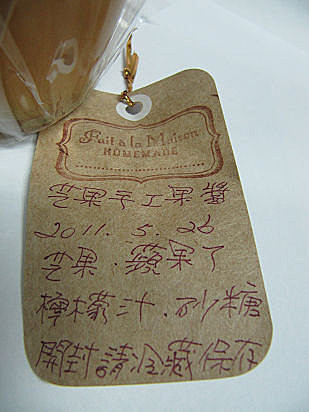 Fait à la Maison
HOMEMADE
芒果手工果醬
2011. 5. 26
芒果．蘋果丁
檸檬汁．砂糖
開封請冷藏保存